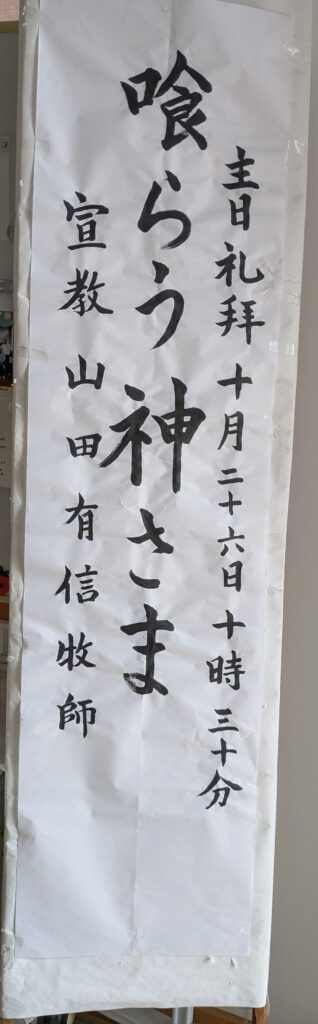 主日礼拝 十月二十六日 十時三十分
喰らう神さま
宣教 山田有信牧師